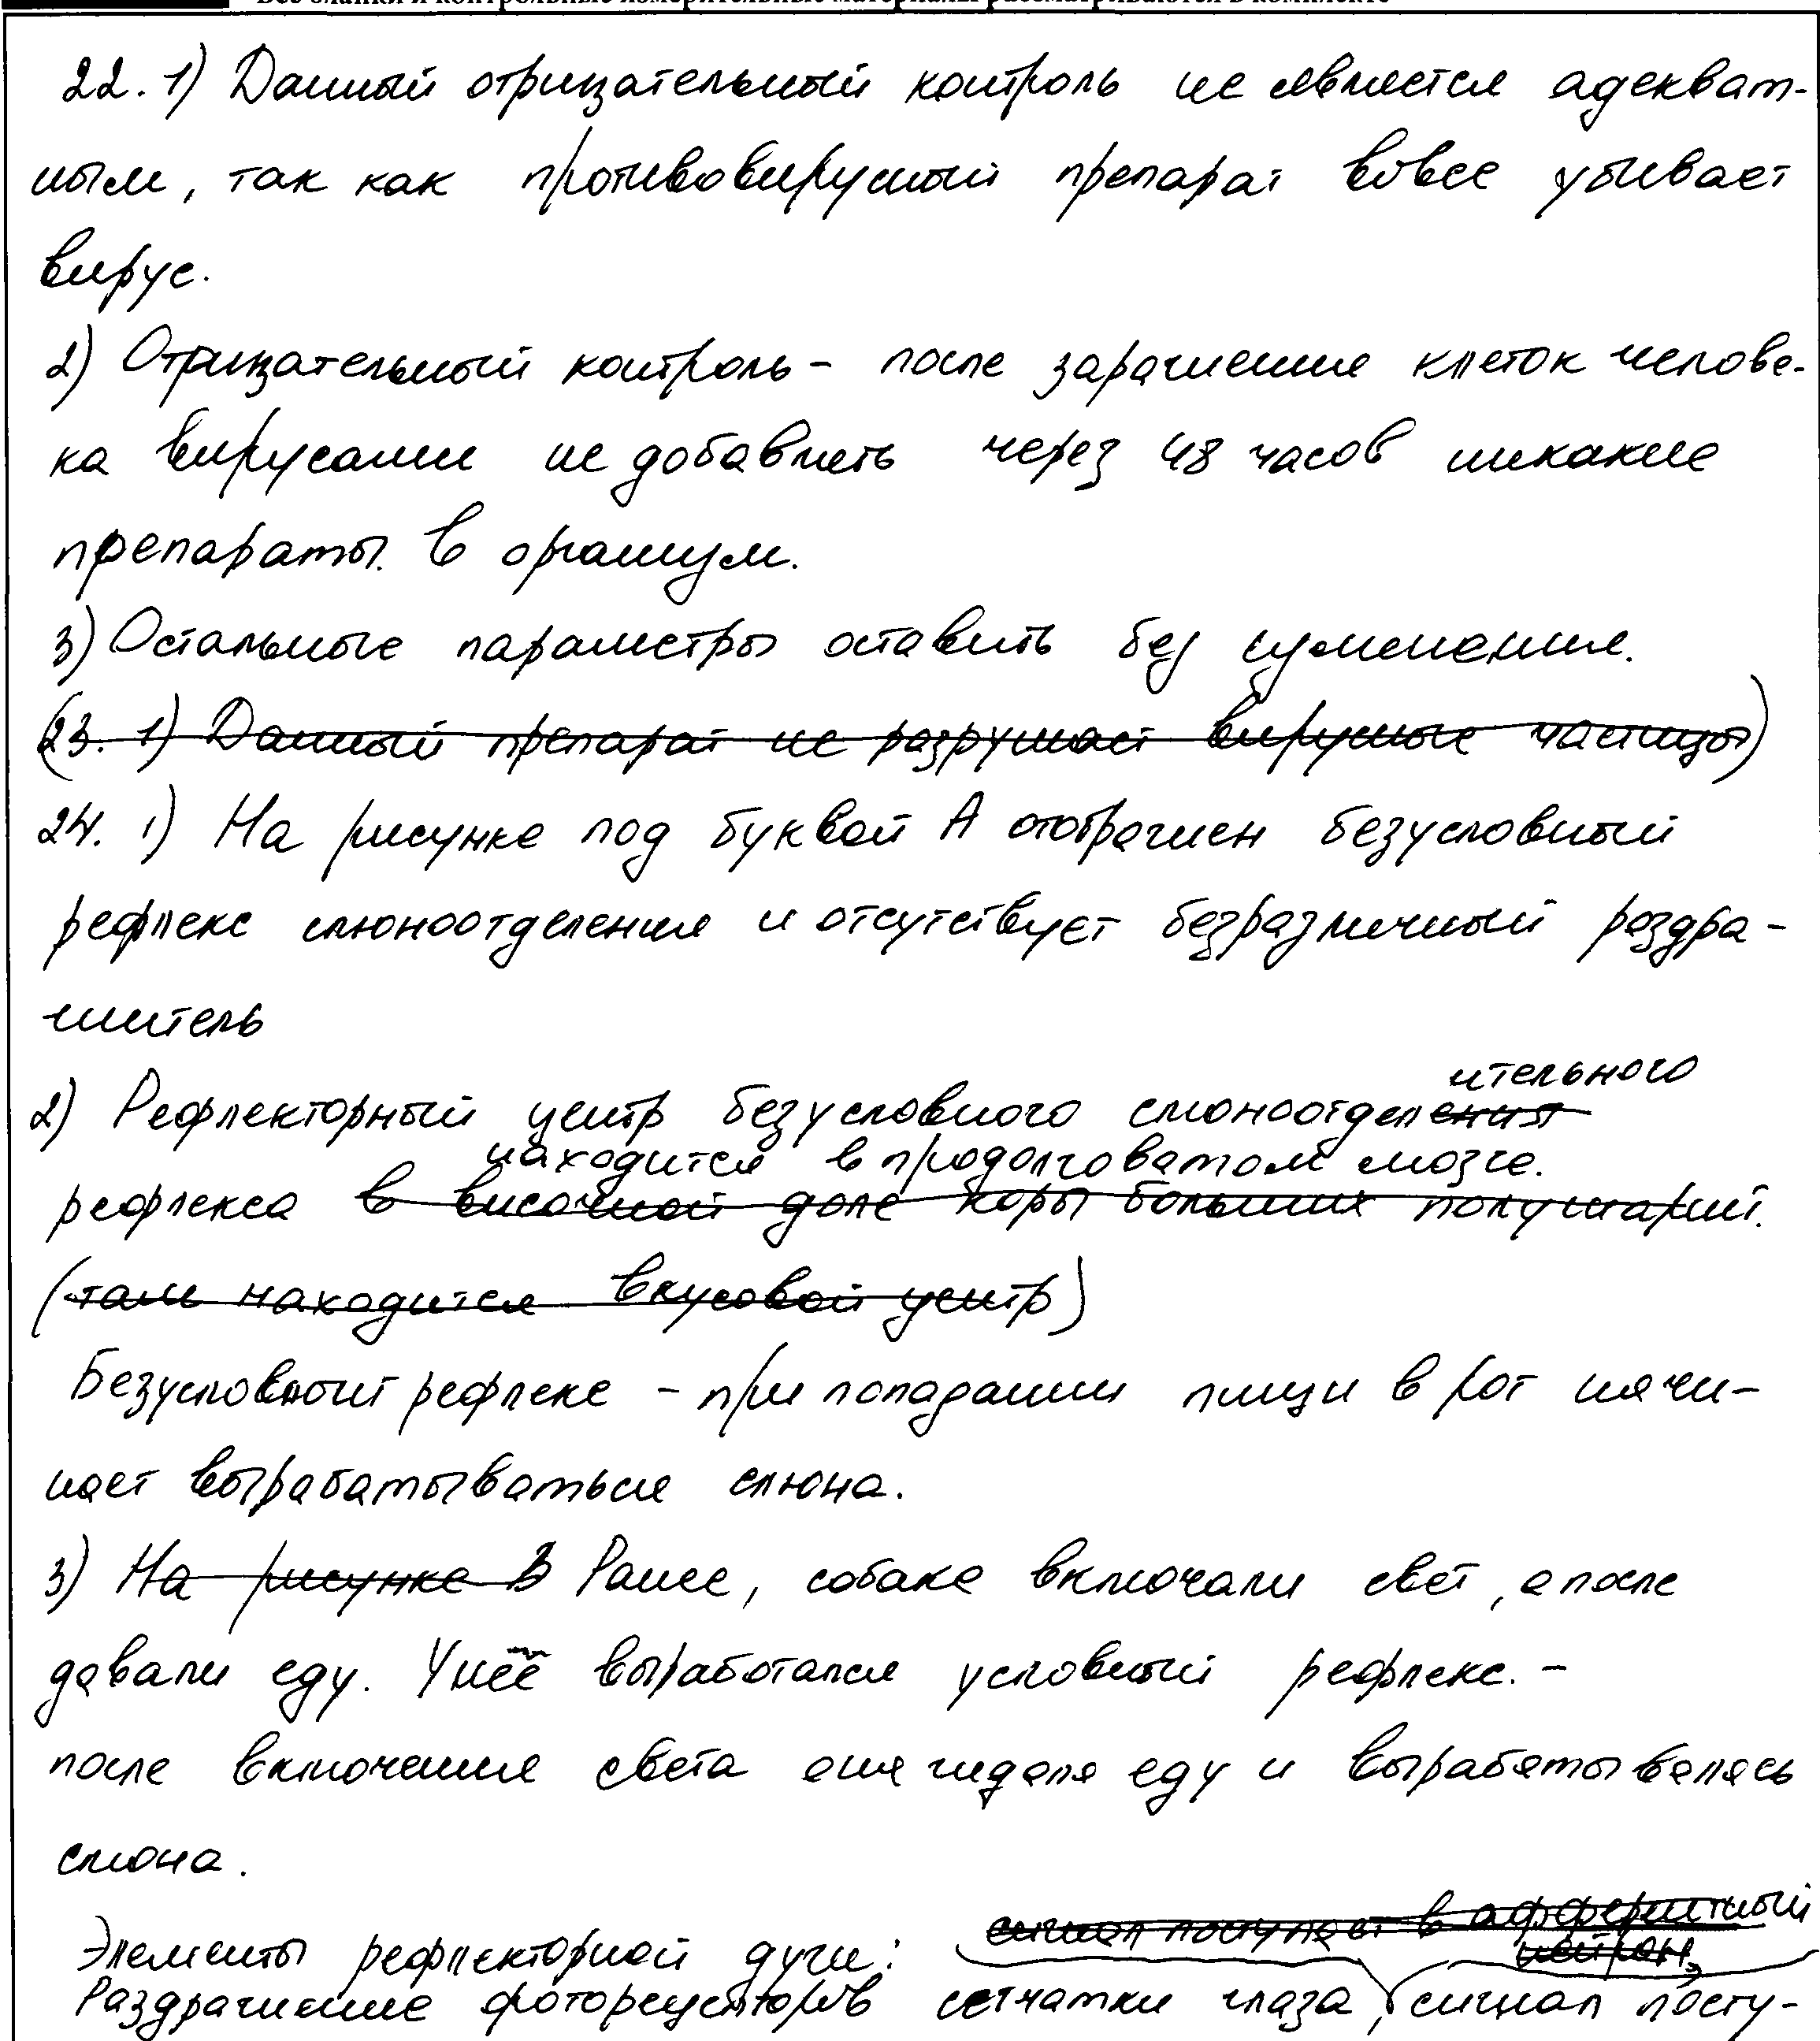 Все бланки и контрольные измерительные материалы рассматриваются в комплекте
22. 1) Данный отрицательный контроль не является адекват-
ным, так как противовирусный препарат вовсе убивает
вирус.
2) Отрицательный контроль - после заражения клеток челове-
ка вирусами не добавлять через 48 часов никакие
препараты. в организм.
3) Остальные параметры оставить без изменения.
(23. 1) Данный препарат не разрушает вирусные частицы)
24. 1) На рисунке под буквой А отображен безусловный
рефлекс слюноотделения и отсутствует безразличный раздра-
житель
ительного
2) Рефлекторный центр безусловного слюноотделения
находится в продолговатом мозге.
рефлекса в височной доле коры больших полушарий.
(там находится вкусовой центр)
Безусловный рефлекс - при попадании пищи в рот начи-
нает вырабатываться слюна.
3) На рисунке В Ранее, собаке включали свет, а после
давали еду. У неё выработался условный рефлекс. -
после включения света она ждала еду и вырабатывалась
слюна.
сигнал поступает в афферентный
Элементы рефлекторной дуги: нейрон,
Раздражение фоторецепторов сетчатки глаза, сигнал посту-